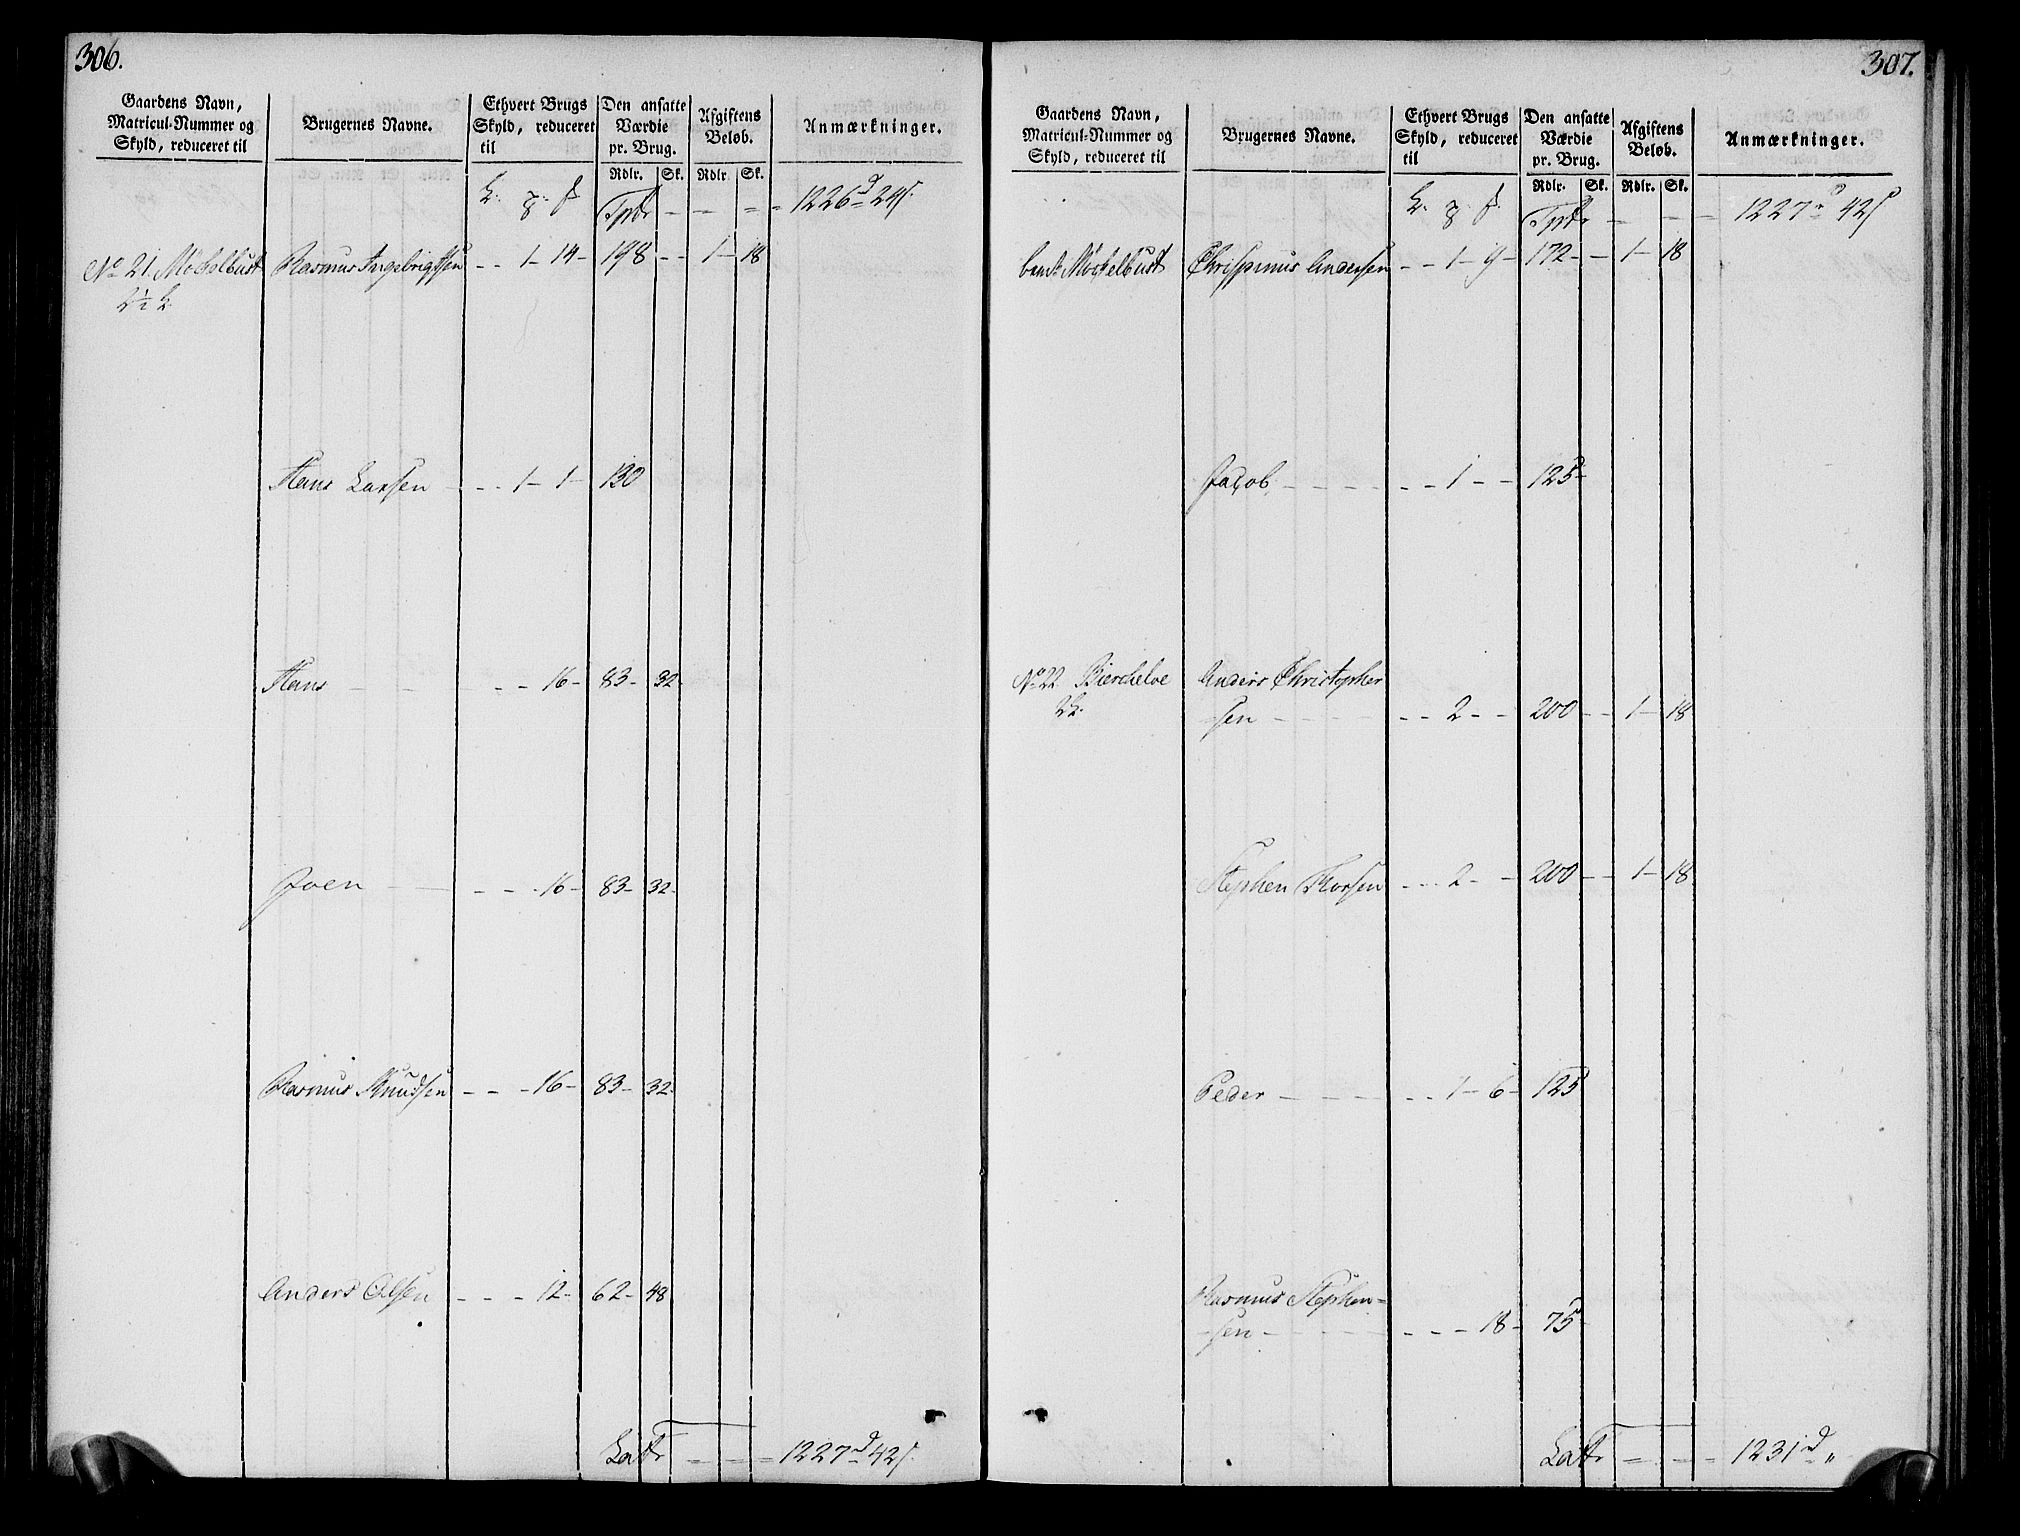 306.
Gaardens Navn, Matricul-Nummer og Skyld, reduceret til
Brugernes Navne.
Ethvert Brugs Skyld, reduceret til
Den ansatte Værdie pr. Brug.
Afgiftens Beløb.
Anmærkninger.
Rdlr. Sk. Rdlr. Sk.
Tpr - - = = 1226 d 24 s.
No 21. Möchelbust Rasmus Ingebrigtsen - - 1 - 14 - 198 - - 1 - 18
2½
Hans Larsen - - - 1 - 1 - 130
Hans - - - - 16 - 83 - 32 -
Joen - - - - 16 - 83 - 32 -
Rasmus Knudsen - - - 16 - 83 - 32 -
Anders Olsen - - - 12 - 62 - 48
Latr - - = 1227 d 42 s.
307.
Gaardens Navn, Matricul-Nummer og Skyld, reduceret til
Brugernes Navne.
Ethvert Brugs Skyld, reduceret til
Den ansatte Værdie pr. Brug.
Afgiftens Beløb.
Anmærkninger.
Rdlr. Sk. Rdlr. Sk.
Tpr - - - 1227 d 42 s
Möchelbust Chrispinus Andersen - - 1 - 9 - 172 - - 1 - 18
Jacob - - - - 1 - - 125 -
No 22 Biercheloe Anders Christopher
2
sen - - - - 2 - - 200 - - 1 - 18
Stephen Thorsen - - - 2 - - 200 - - 1 - 18
Peder - - - - 1 - 6 - 125
Rasmus Stephen=
sen - - - - 18 - 75 -
Latr - - - 1231 d "